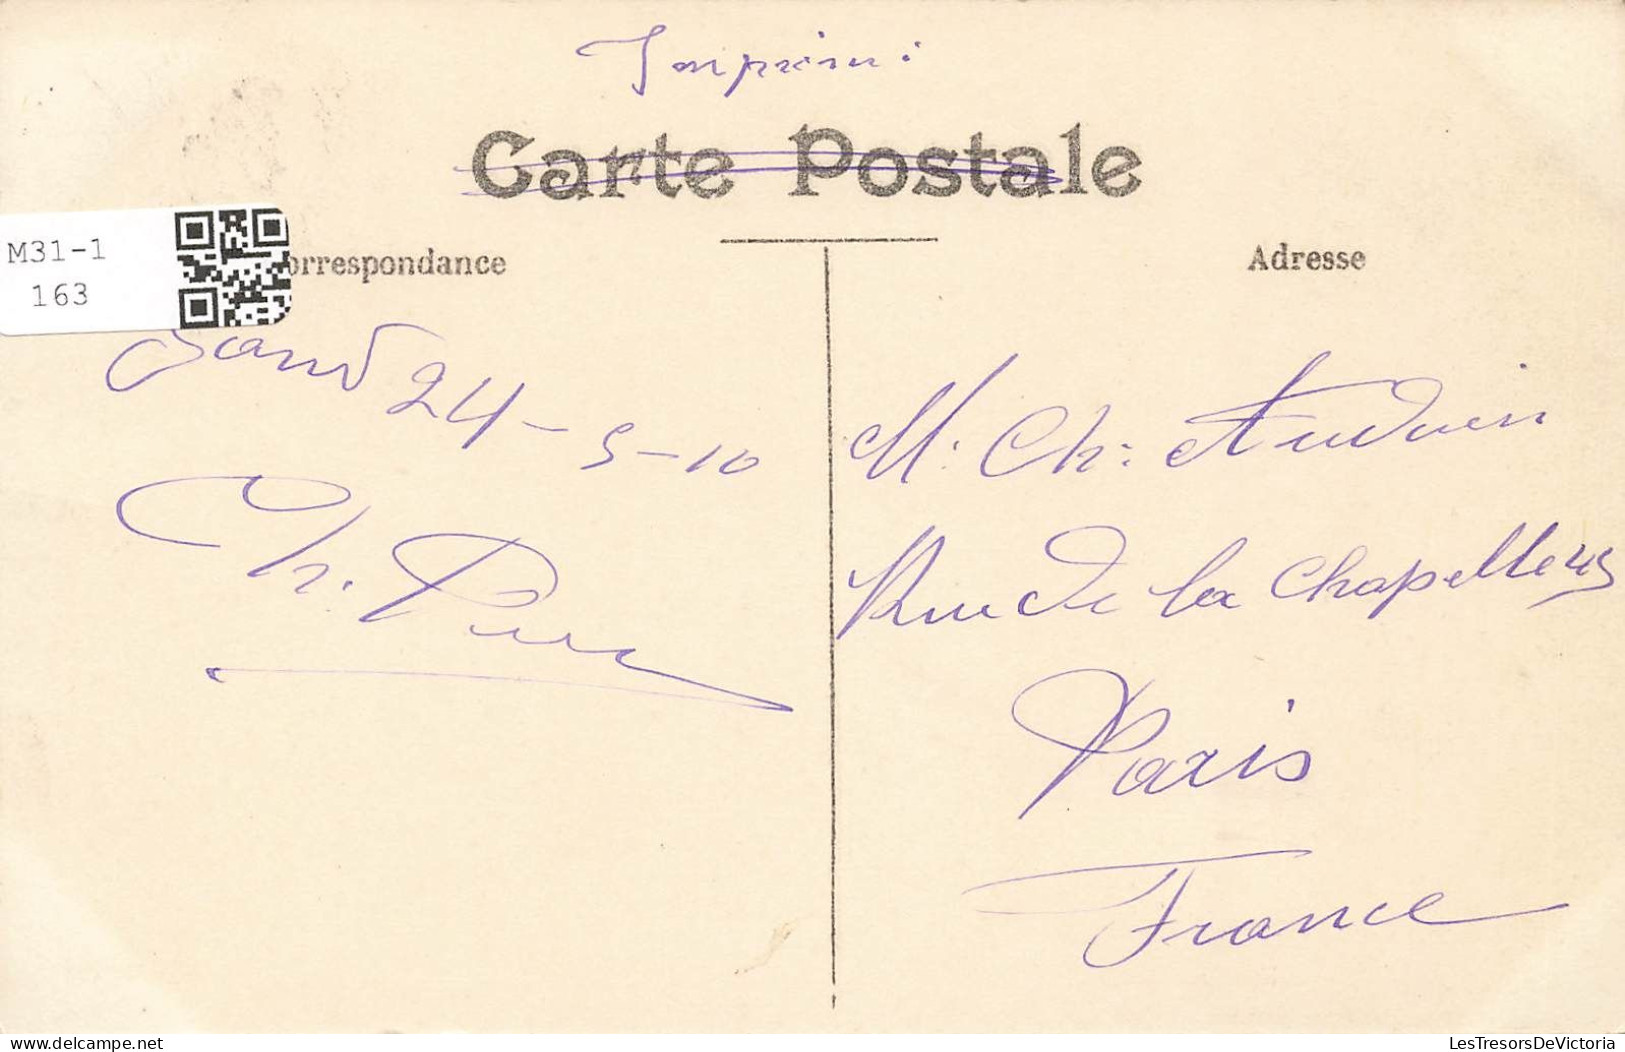 Imprimé
Carte Postale
M31-1
163
orrespondance
Adresse
Gand 24-5-10
M. Ch: Audouin
Ch.
Rue de la Chapelle
Paris
France
delcampe.net
LesTresorsDeVictoria